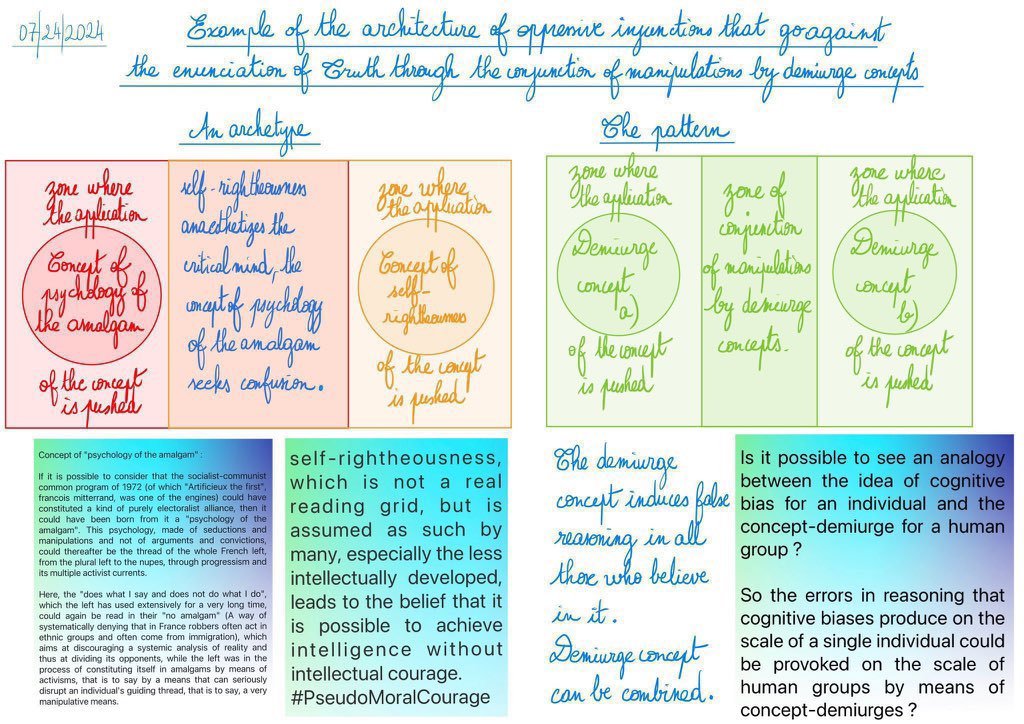 07/24/2024
Example of the architecture of oppressive injunctions that go against
the enunciation of Truth through the conjunction of manipulations by demiurge concepts
An archetype
zone where
the application
Concept of
psychology of
the amalgam
of the concept
is pushed
self-rightheousness
anaesthetizes the
critical mind, the
concept of psychology
of the amalgam
seeks confusion.
zone where
the application
Concept of
self-
rightheousness
of the concept
is pushed
The pattern
zone where
the application
Demiurge
concept
a)
of the concept
is pushed
zone of
conjunction
of manipulations
by demiurge
concepts.
zone where
the application
Demiurge
concept
b)
of the concept
is pushed
Concept of "psychology of the amalgam" :
If it is possible to consider that the socialist-communist
common program of 1972 (of which "Artificieux the first",
francois mitterrand, was one of the engines) could have
constituted a kind of purely electoralist alliance, then it
could have been born from it a "psychology of the
amalgam". This psychology, made of seductions and
manipulations and not of arguments and convictions,
could thereafter be the thread of the whole French left,
from the plural left to the nupes, through progressism and
its multiple activist currents.
Here, the "does what I say and does not do what I do",
which the left has used extensively for a very long time,
could again be read in their "no amalgam" (A way of
systematically denying that in France robbers often act in
ethnic groups and often come from immigration), which
aims at discouraging a systemic analysis of reality and
thus at dividing its opponents, while the left was in the
process of constituting itself in amalgams by means of
activisms, that is to say by a means that can seriously
disrupt an individual's guiding thread, that is to say, a very
manipulative means.
self-rightheousness,
which is not a real
reading grid, but is
assumed as such by
many, especially the less
intellectually developed,
leads to the belief that it
is possible to achieve
intelligence without
intellectual courage.
#PseudoMoralCourage
The demiurge
concept induces false
reasoning in all
those who believe
in it.
Demiurge concept
can be combined.
Is it possible to see an analogy
between the idea of cognitive
bias for an individual and the
concept-demiurge for a human
group ?
So the errors in reasoning that
cognitive biases produce on the
scale of a single individual could
be provoked on the scale of
human groups by means of
concept-demiurges ?